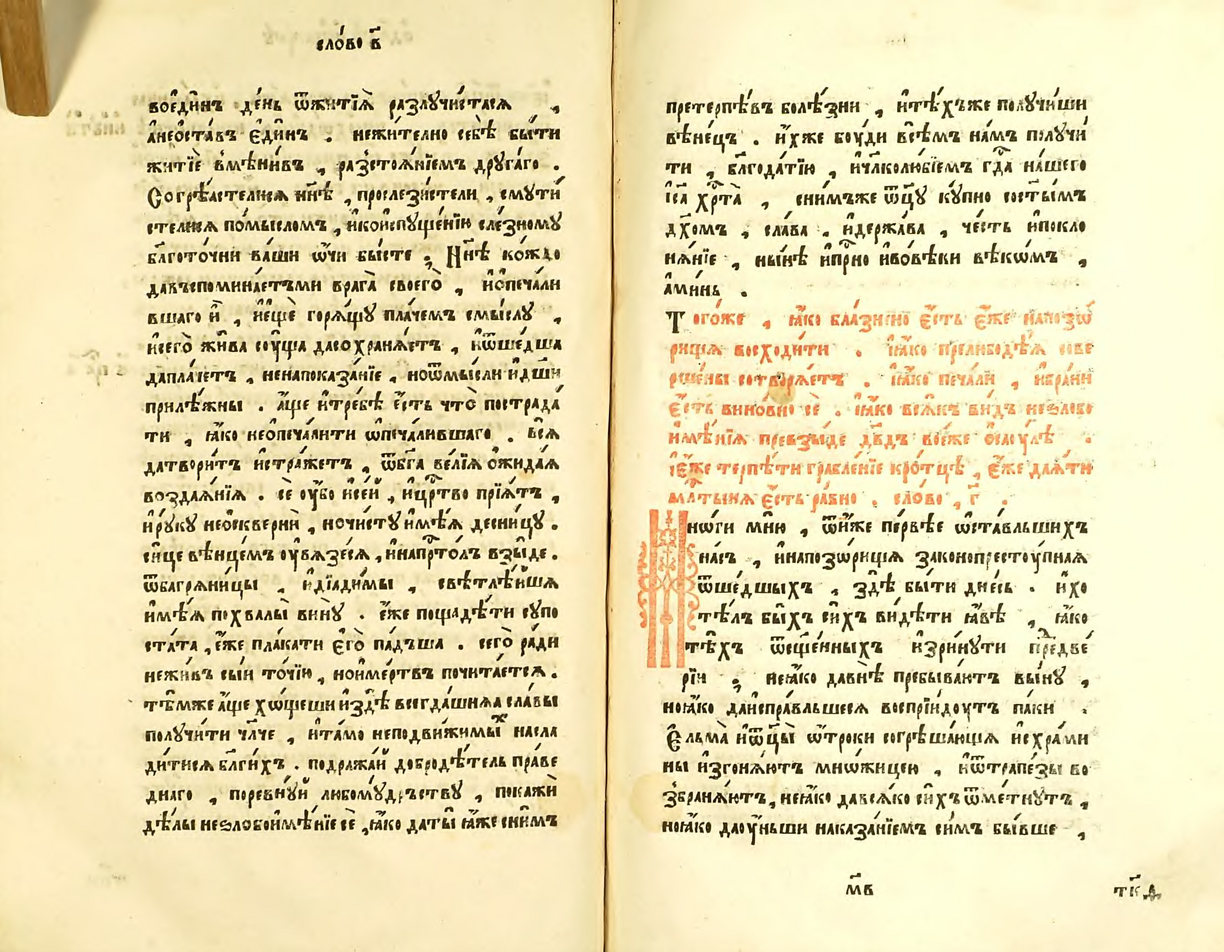 сло́во в҃
воеди́нъ де́нь ѿжитїѧ̀ разлꙋчи́стасѧ ,
а҆неѡста́въ є҆ди́нъ . нежи́телно себѣ̀ бы́ти
житїѐ вмѣни́въ , разстоѧ́нїемъ дрꙋга́го .
Согрѣѧ́стелисѧ нн҃ѣ , прослези́стели , смꙋти́
стелисѧ по́мысломъ , и҆коиспꙋще́нїю сле́зномꙋ
бл҃готочни ва́ши ѻ҆́чи бы́сте ; Нн҃ѣ ко́ждо
давъспомина́етъми врага̀ своего̀ , и҆ѡпеча́ли
вшаго и҆̀ , и҆е҆щѐ горѧ́щꙋ пла́чемъ смы́слꙋ ,
и҆сего̀ жи́ва сꙋ́ща дасохранѧ́етъ , и҆ѿше́дша
дапла́четъ , ненапоказа́нїе , ноѿмы́сли и҆дш҃и
прилѣ́жны . а҆́ще и҆тре́бѣ є҆́сть что̀ пострада́
ти , ꙗ҆́ко неѡпеча́лити ѡ҆печа́лившаго . всѧ̀
датвори́тъ и҆стра́жетъ , ѿбг҃а ве́лїѧ ѻ҆жида́ѧ
воздаѧ́нїѧ . сѐ ᲂу҆́бо и҆се́й , и҆црⷭ҇тво прїѧ́тъ ,
и҆рꙋ́кꙋ неѡскверни́ , ночи́стꙋ и҆мѣ́ѧ десни́цꙋ .
си́це вѣнце́мъ ᲂу҆вѧзе́сѧ , и҆напрⷭ҇то́лъ взы́де .
ѿбагрѧни́цы , и҆дїади́мы , свѣтлѣ́йшѧ
и҆мѣ́ѧ похвалы̀ винꙋ̀ . є҆́же пощадѣ́ти сꙋпо
ста́та , є҆́же пла́кати є҆го̀ па́дъша . сего̀ ра́ди
нежи́въ сы́и то́чїю , ноиме́ртвъ почита́етсѧ .
тѣ́мже а҆́ще хо́щеши и҆здѣ̀ всегда́шнѧѧ сла́вы
полꙋчи́ти чл҃че , и҆та́мо неподви́жимыⷯ насла
ди́тисѧ бл҃ги́хъ . подража́й добродѣ́тель пра́ве
днаго , поревнꙋ́й любомꙋ́дръствꙋ , покажѝ
дѣ́лы неѕлобоимѣ́нїе сѐ , ꙗ҆́ко даты̀ ꙗ҆́же сни́мъ
претерпѣ́въ болѣ́зни , и҆тѣ́хъже полꙋчи́ши
вѣне́цъ . и҆́хже бꙋ́ди всѣ́мъ на́мъ полꙋчи́
ти , бл҃года́тїю , и҆чл҃колю́бїемъ гдⷭ҇а на́шего
і҆с҃а хрⷭ҇та̀ , сни́мъже ѻ҆ц҃ꙋ кꙋ́пно состы́мъ
дх҃омъ , сла́ва , и҆держа́ва , че́сть и҆покло
нѧ́нїе , ны́нѣ и҆при́сно и҆вовѣ́ки вѣкѡ́мъ ,
а҆ми́нь .
Того́же , ꙗ҆́ко бла́знено є҆́сть є҆́же напозо
рища восходи́ти . ꙗ҆́ко прелюбодѣ́ѧ сове
рше́ны сотворѧ́етъ . ꙗ҆́ко печа́ли , и҆бра́ни
є҆́сть вино́вно сѐ . ꙗ҆́ко всѧ́къ ви́дъ неѕлобо
имѣ́нїѧ превзы́де дв҃дъ воє҆́же ѡ҆саꙋ́лѣ .
і҆є҆́же терпѣ́ти грабле́нїе кро́тцѣ , є҆́же даѧ́ти
ми́лтынѧ є҆́сть ра́вно . сло́во , г҃ .
Мно́ги мню̀ , ѿни́же пе́рвѣе ѡ҆ста́вльшихъ
на́съ , и҆напозо́рища законопрестꙋ́пнаѧ
ѿше́дшыхъ , здѣ̀ бы́ти дне́сь . и҆хо
тѣ́лъ бы́хъ си́хъ ви́дѣти ꙗ҆́вѣ , ꙗ҆́ко
тѣ́хъ ѿсщ҃е́нныхъ и҆зри́нꙋти предве́
рїи ; неꙗ҆́ко давнѣ̀ пребыва́ютъ вы́нꙋ ,
ноꙗ҆́ко даиспра́вльшесѧ воспрїидꙋ́тъ па́ки .
Є҆льма̀ и҆ѻ҆тцы̀ ѻ҆́троки согрѣша́ющаѧ и҆схра́ми
ны и҆згонѧ́ютъ мно́жицею , и҆ѿтрапе́зы во
збранѧ́ютъ , неꙗ҆́ко давсѧ́ко си́хъ ѿме́тнꙋтъ ,
ноꙗ҆́ко даꙋ́ньши наказа́нїемъ си́мъ бы́вше ,
м҃в
тк҃д